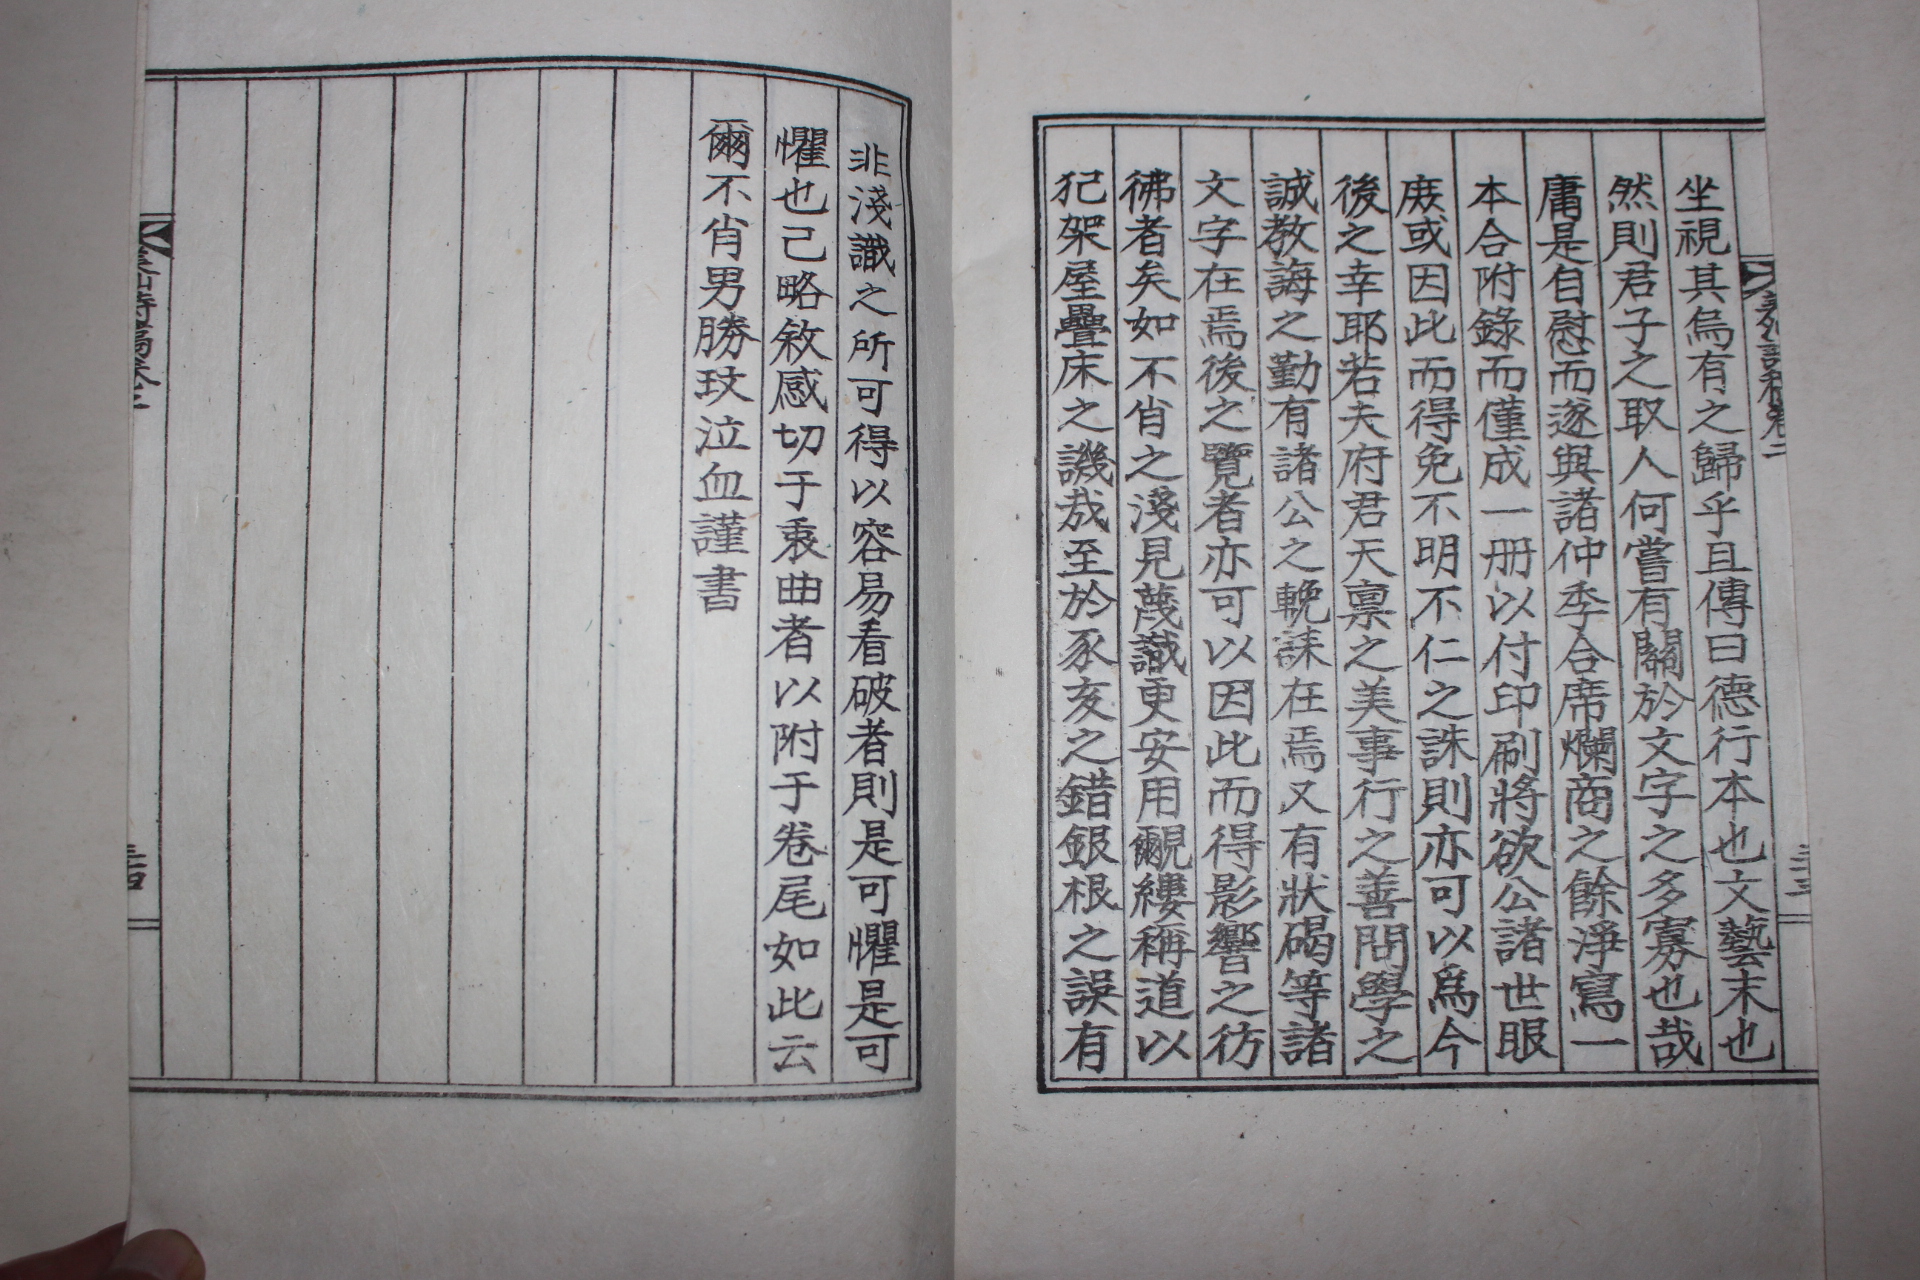 坐視其烏有之歸乎且傳曰德行本也文藝末也
然則君子之取人何嘗有關於文字之多寡也哉
庸是自慰而遂與諸仲季合席爛商之餘淨寫一
本合附錄而僅成一册以付印刷將欲公諸世眼
庶或因此而得免不明不仁之誅則亦可以爲今
後之幸耶若夫府君天稟之美事行之善問學之
誠教誨之勤有諸公之輓誄在焉又有狀碣等諸
文字在焉後之覽者亦可以因此而得影響之彷
彿者矣如不肖之淺見蔑識更安用覼縷稱道以
犯架屋疊床之譏哉至於豕亥之錯銀根之誤有
非淺識之所可得以容易看破者則是可懼是可
懼也已略敘感切于衷曲者以附于卷尾如此云
爾不肖男勝玟泣血謹書